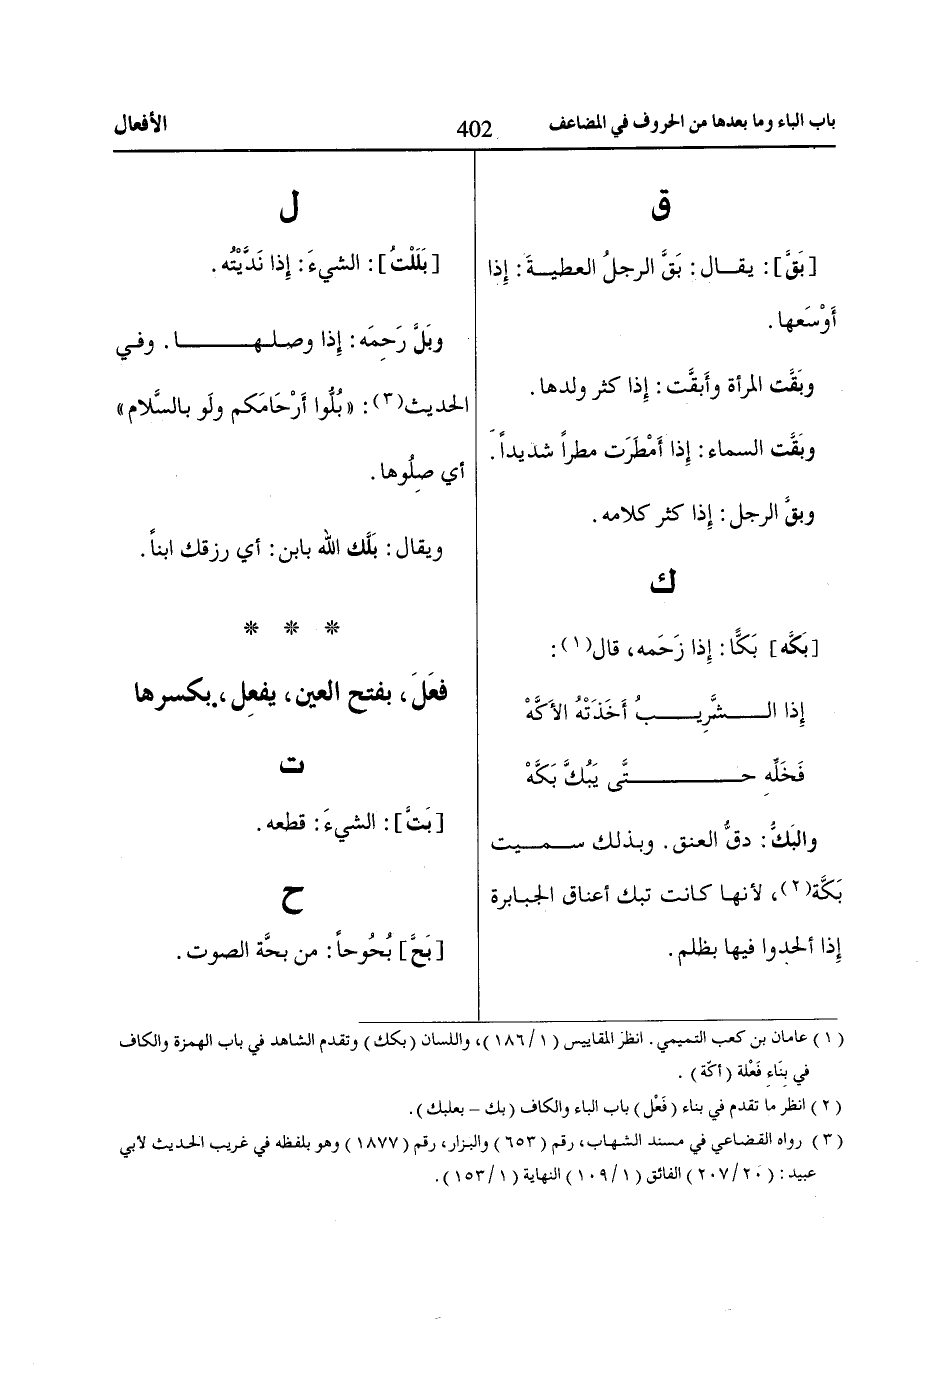 باب الباء وما بعدها من الحروف في المضاعف
402
الأفعال
ق
[بَقَّ]: يقال: بَقَّ الرجلُ العطيةَ: إذا
أوْسَعها.
وبَقَّت المرأة وأَبقَّت: إذا كثر ولدها.
وبَقَّت السماء: إذا أَمْطَرَت مطراً شديداً.
وبقَّ الرجل: إذا كثر كلامه.
ك
[بَكَّه] بَكًّا: إذا زَحَمه، قال(١):
إذا الشَّرِيبُ أخَذَتْهُ الأكَّهْ
فَخَلِّهِ حتَّى يَبُكَّ بَكَّهْ
والبَكُّ: دقُّ العنق. وبذلك سميت
بَكَّة(٢)، لأنها كانت تبك أعناق الجبابرة
إذا ألحدوا فيها بظلم.
ل
[بَلَلْتُ]: الشيءَ: إذا نَدَّيْتُه.
وبَلَّ رَحِمَه: إذا وصلها. وفي
الحديث(٣): «بُلُّوا أرْحَامَكم ولَو بالسَّلام»
أي صِلُوها.
ويقال: بَلَّك الله بابن: أي رزقك ابناً.
* * *
فعَلَ، بفتح العين، يفعِل، بكسرها
ت
[بَتَّ]: الشيءَ: قطعه.
ح
[بَحَّ] بُحُوحاً: من بحَّة الصوت.
(١) عامان بن كعب التميمي. انظر المقاييس (١/١٨٦)، واللسان (بكك) وتقدم الشاهد في باب الهمزة والكاف
في بِنَاءِ فَعْلة (أكّة).
(٢) انظر ما تقدم في بناء (فَعْل) باب الباء والكاف (بك – بعلبك).
(٣) رواه القضاعي في مسند الشهاب، رقم (٦٥٣) والبزار، رقم (١٨٧٧) وهو بلفظه في غريب الحديث لأبي
عبيد: (٢٠٧/٢٠) الفائق (١/١٠٩) النهاية (١/١٥٣).